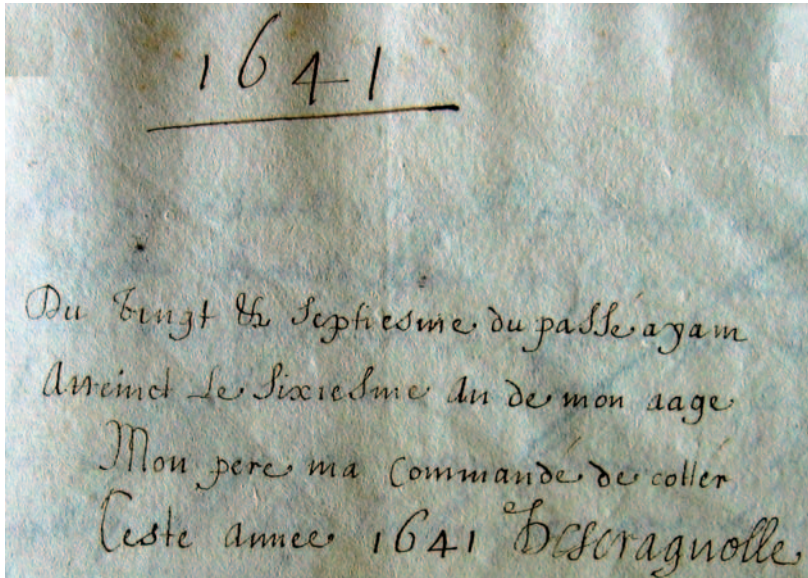 1641
Du vingt & septiesme du passé ayam
Atteinct Le sixiesme an de mon aage
Mon pere ma commandé de coller
Ceste annee 1641 Descragnolle